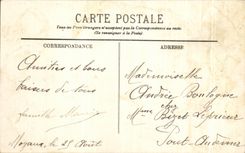 CARTE POSTALE
Tous les Pays étrangers n'acceptent pas la Correspondance au recto.
(Se renseigner à la Poste)
CORRESPONDANCE
ADRESSE
Amitiés et bons
baisers de tous
famille
Mademoiselle
Andrée Boulogne
chez
Mme Bizet
Pont-Audemer
le 25 Août